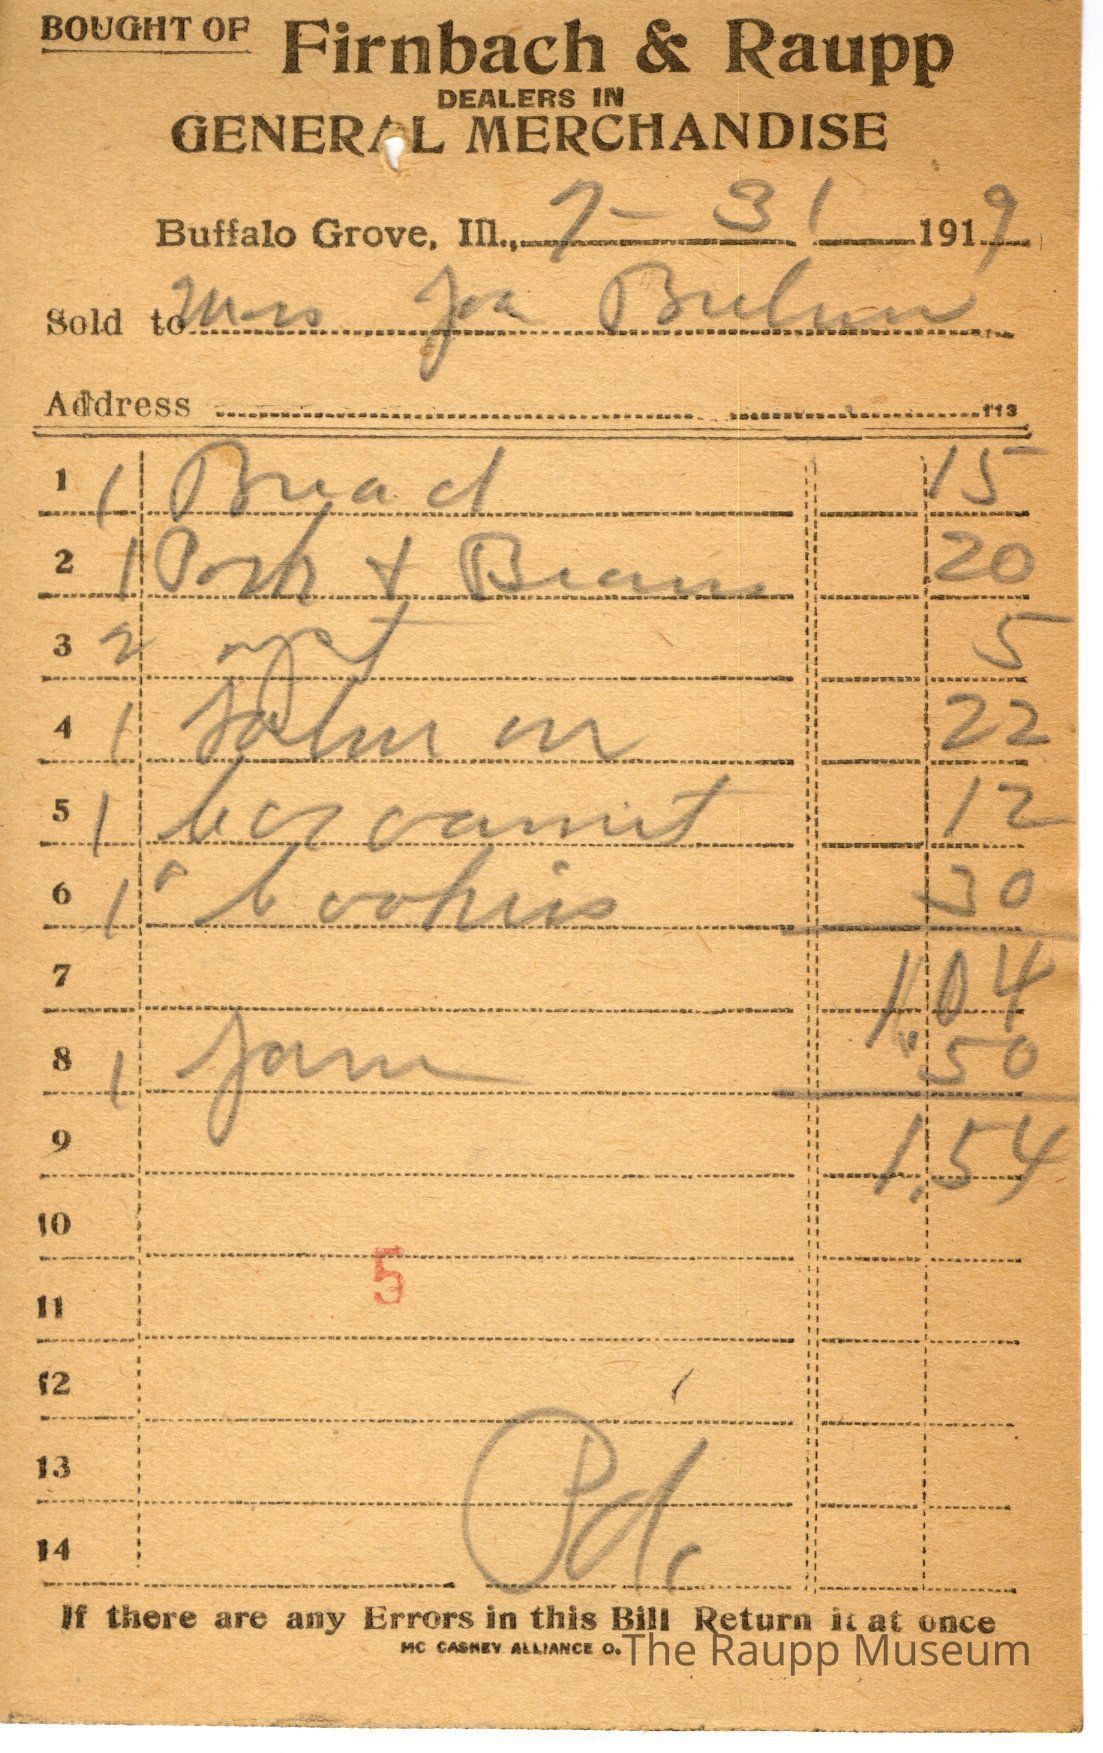 BOUGHT OF Firnbach & Raupp
DEALERS IN
GENERAL MERCHANDISE
Buffalo Grove, Ill., 7-31 1919
Sold to Mrs Joe
Address 113
1 1 Bread 15
2 1 Pork + Beans 20
3 2 5
4 1 Salmon 22
5 1 Cocoanut 12
6 1 Cookies 30
7 1.04
8 1 Jam 50
9 1.54
10
5
11
12
13
Pd.
14
If there are any Errors in this Bill Return it at once
MC CASKEY ALLIANCE O.
The Raupp Museum